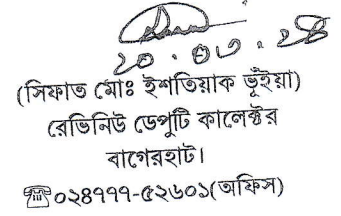 ২০.০৩.২৪
(সিফাত মোঃ ইশতিয়াক ভূঁইয়া)
রেভিনিউ ডেপুটি কালেক্টর
বাগেরহাট।
☎০২৪৭৭৭-৫২৬০১(অফিস)